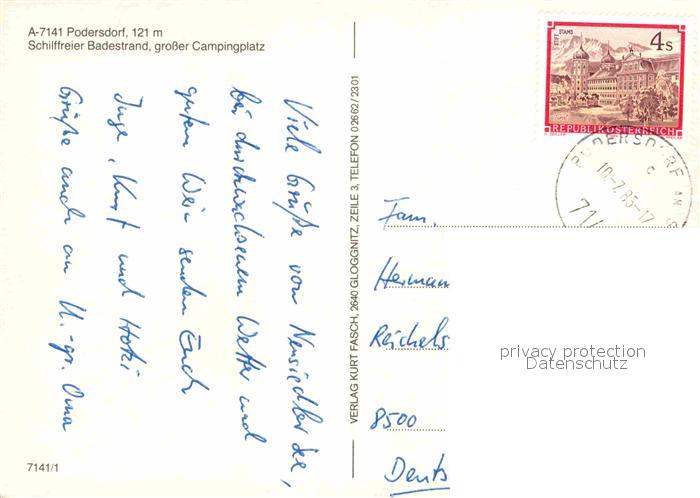 A-7141 Podersdorf, 121 m
Schilffreier Badestrand, großer Campingplatz
Viele Grüße vom Neusiedler See,
bei durchwachsenem Wetter und
gutem Wein senden Euch
Inge, Kurt und Hotki
Grüße auch an U.-gr. Oma
7141/1
VERLAG KURT FASCH, 2640 GLOGGNITZ, ZEILE 3, TELEFON 0 26 62 / 23 01
STIFT STAMS
4 S
REPUBLIK ÖSTERREICH
PODERSDORF AM
10.-7.85-17
c
71
Fam.
Herman
Reichels
8500
Deuts
privacy protection
Datenschutz